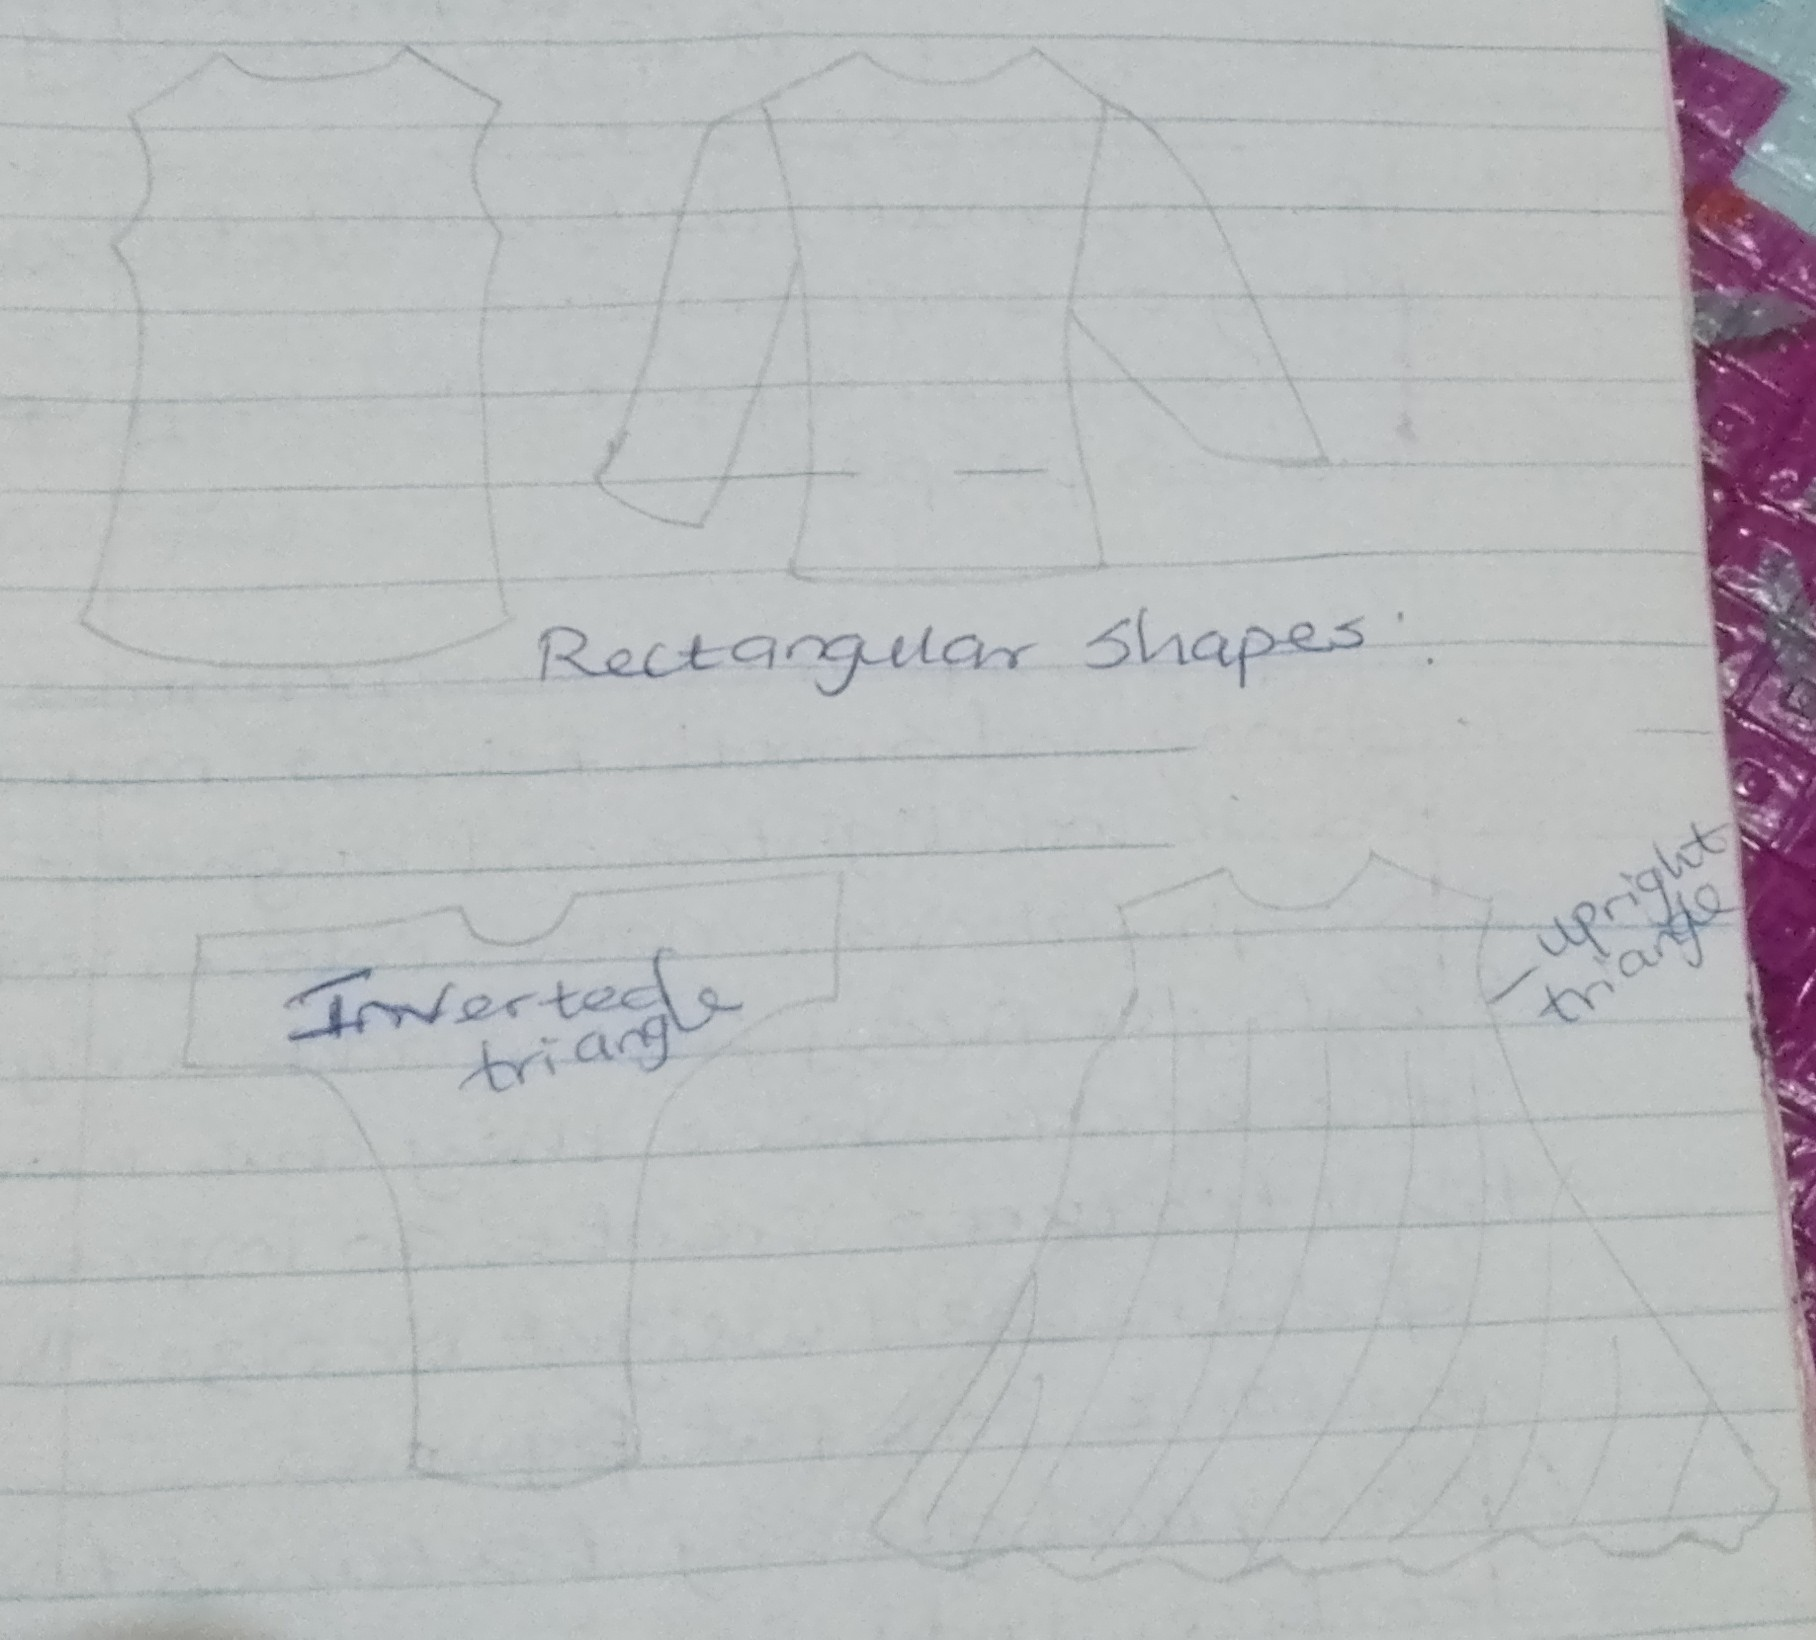 Rectangular Shapes:
Inverted
triangle
upright
triangle